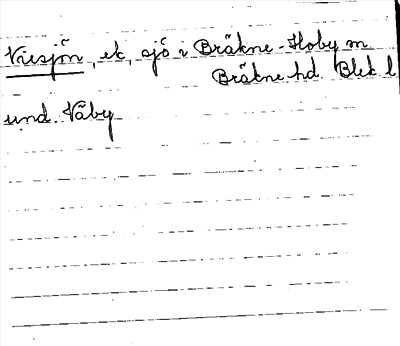 Viesjön, ek, sjö i Bräkne-Hoby sn
Bräkne hd. Blek l
und. Väby